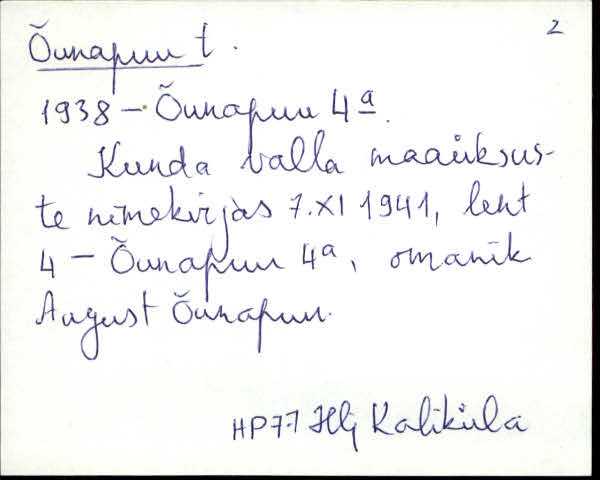 2
Õunapuu t.
1938 – Õunapuu 4ª.
Kunda valla maaüksus-
te nimekirjas 7.XI 1941, leht
4 – Õunapuu 4ª, omanik
August Õunapuu.
HP77 Hlj Kaliküla